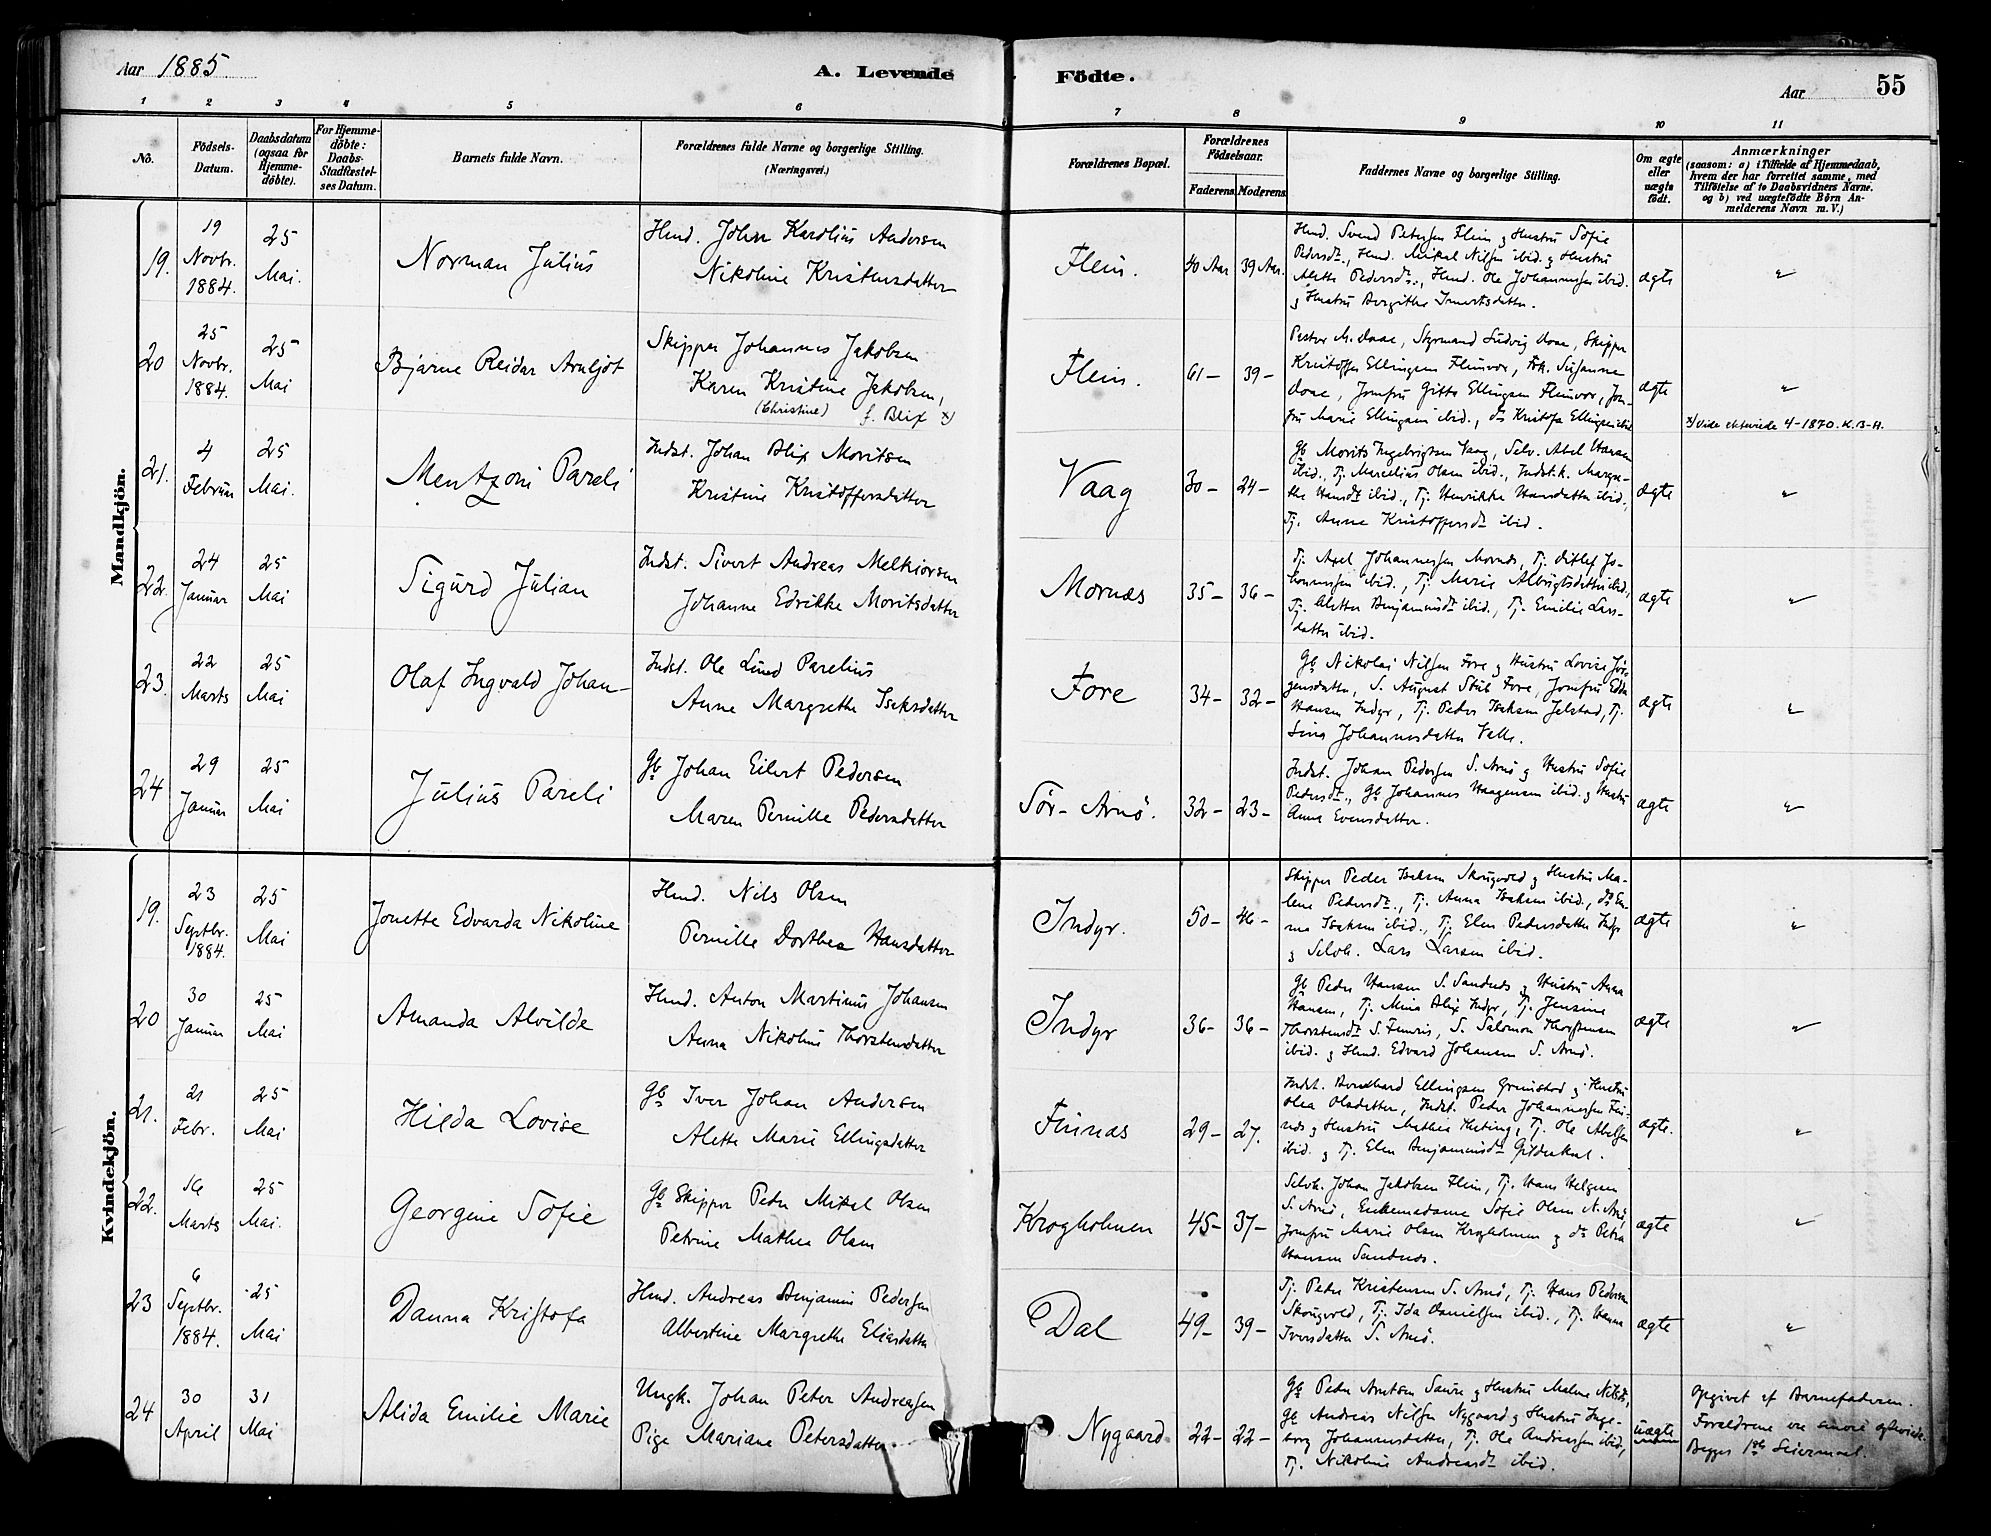 Aar 1885
A. Levende Födte.
Aar
55
1 2 3 4 5 6 7 8 9 10 11
No.
Födsels-Datum.
Daabsdatum (ogsaa for Hjemme-döbte).
For Hjemme-döbte: Daabs-Stadfæstel-ses Datum.
Barnets fulde Navn.
Forældrenes fulde Navne og borgerlige Stilling.
(Næringsvei.)
Forældrenes Bopæl.
Forældrenes Födselsaar.
Faderens. Moderens.
Faddernes Navne og borgerlige Stilling.
Om ægte eller uægte födt.
Anmærkninger
(saasom: a) i Tilfælde af Hjemmedaab,
hvem der har forrettet samme, med
Tilföielse af to Daabsvidners Navne.
og b) ved uægtefödte Börn An-
melderens Navn m. V.)
Mandkjön.
19. 19 Novbr. 1884. 25 Mai. Norman Julius
Hmd. Johan Karolius Andersen
Nikoline Kristensdatter
Flein. 40 Aar 39 Aar.
Hmd. Svend Petersen Flein & Hustru Sofie
Pedersdt., Hmd. Mikal Nilsen ibid. & Hustru
Alette Pedersdt., Hmd. Ole Johannessen ibid.
& Hustru Bergithe
ægte "
20 25 Novbr. 1884. 25 Mai Bjarne Reidar Arnljot
Skipper Johannes Jakobsen
Karen Kristine Jakobsen,
(Christine) f. Blix x)
Flein. 61 – 39 –
Pastor M. Daae, Styrmand Ludvig Daae, Skipper
Kristoffer Ellingsen Fleinvær, Frk. Susanne
Daae, Jomfru Gitte Ellingsen Fleinvær, Jom-
fru Marie Ellingsen ibid., do Kristofa Ellingsen ibid
ægte "
x) Vide ekteviede 4-1870. K.B-A.
21. 4 Februar 25 Mai. Mentzoni Pareli
Indst. Johan Blix Moritsen
Kristine Kristoffersdatter
Vaag 30 – 24 –
Gb Morits Ingebrigtsen Vaag, Selv. Abel Hansen
ibid., Tj. Marcelius Olsen ibid., Indst.k. Margre-
the Hansdt ibid., Tj. Henrikke Hansdatter ibid.,
Tj. Anne Kristoffersdt ibid.
ægte "
22. 24 Januar 25 Mai Sigurd Julian
Indst. Sivert Andreas Melkiorsen
Johanne Edrikke Moritsdatter
Mornæs 35 – 36 –
Tj. Axel Johannessen Mornæs, Tj. Ditlef Jo-
hannessen ibid., Tj. Marie Albrigtsdatter ibid,
Tj. Alette Benjaminsdt ibid., Tj. Emilie Lars-
datter ibid.
ægte "
23. 22 Marts 25 Mai Olaf Ingvald Johan
Indst. Ole Lund Parelius
Anne Margrethe Isaksdatter
Fore 34 – 32 –
Gb Nikolai Nilsen Fore & Hustru Lovise Jör-
gensdatter, S. August Stub Fore, Jomfru Edda
Hansen Indyr, Tj. Peder Isaksen Jelstad, Tj.
Lina Johannesdatter Valle.
ægte "
24 29 Januar 25 Mai Julius Pareli
Gb Johan Eilert Pedersen
Maren Pernille Pedersdatter
Sör-Arnö. 32 – 23 –
Indst. Johan Pedersen S. Arnö & Hustru Sofie
Pedersdt., Gb Johannes Haagensen ibid. & Hustru
Anne Evensdatter.
ægte "
Kvindekjön.
19. 23 Septbr. 1884. 25 Mai Jonette Edvarda Nikoline
Hmd. Nils Olsen
Pernille Dorthea Hansdatter
Indyr. 50 – 46 –
Skipper Peder Isaksen Skougvold & Hustru Ma-
lene Pedersdt., Tj. Anna Isaksen ibid.,
Isaksen ibid., Tj. Elen Pedersdatter Indyr
& Selvh. Lars Larsen ibid.
ægte "
20 30 Januar 25 Mai Amanda Alvilde
Hmd. Anton Martinus Johansen
Anna Nikoline Thorstensdatter
Indyr 36 – 36 –
Gb Peder Hansen S. Sandnæs & Hustru Anna
Hansen, Tj. Mina Blix Indyr, Tj. Jensine
Thorstensdt S. Fenris, S. Salomon Thorstensen
ibid. & Hmd. Edvard Johansen S. Arnö.
ægte "
21. 21 Febr. 25 Mai Hilda Lovise
Gb Iver Johan Andersen
Alette Marie Ellingsdatter
Finnæs 29 – 27.
Indst. Bernhard Ellingsen Grimstad & Hustru
Olea Olsdatter, Indst. Peder Johannessen Fin-
næs & Hustru Mathea Tj. Ole Abelsen
ibid. & Tj. Elen Benjaminsdt Gildeskaal.
ægte. "
22. 16 Marts 25 Mai. Georgine Sofie
Gb Skipper Peder Mikal Olsen
Petrine Mathea Olsen
Krogholmen 45 – 37 –
Selvh. Johan Jakobsen Flein, Tj. Hans Helgesen
S. Arnö, Enkemadame Sofie Olsen N. Arnö,
Jomfru Marie Olsen Krogholmen & do Petra
Hansen Sandnæs.
ægte "
23 6 Septbr. 1884. 25 Mai Danna Kristofa
Hmd. Andreas Benjamin Pedersen
Albertine Margrethe Eliasdatter
Dal 49 – 39 –
Tj. Peder Kristensen S. Arnö, Tj. Hans Pedersen
Skougvold, Tj. Ida Danielsen ibid., Tj. Hanna
Iversdatter S. Arnö.
ægte "
24 30 April 31 Mai Alida Emilie Marie
Ungk. Johan Peter Andreassen
Pige Mariane Petersdatter
Nygaard 22 – 22 –
Gb Peder Arntsen Saure & Hustru Malene Nilsdt,
Gb Andreas Nilsen Nygaard & Hustru Inge-
borg Johannesdatter, Tj. Ole Andreassen ibid,
Tj. Nikoline Andreasdt ibid.
uægte
Opgivet af Barnefaderen.
Forældrene ere senere ægteviede.
Begges 1ste Leiermaal.